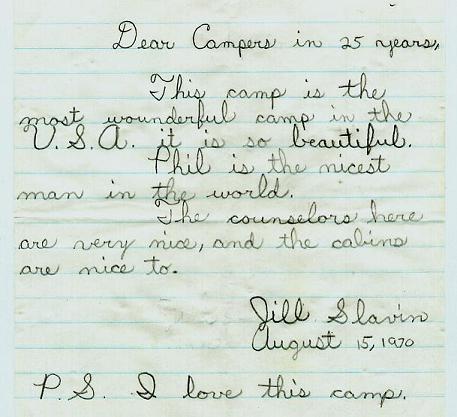 Dear Campers in 25 years,
This camp is the
most wounderful camp in the
U.S.A. it is so beautiful.
Phil is the nicest
man in the world.
The counselors here
are very nice, and the cabins
are nice to.
Jill Slavin
August 15, 1970
P.S. I love this camp.